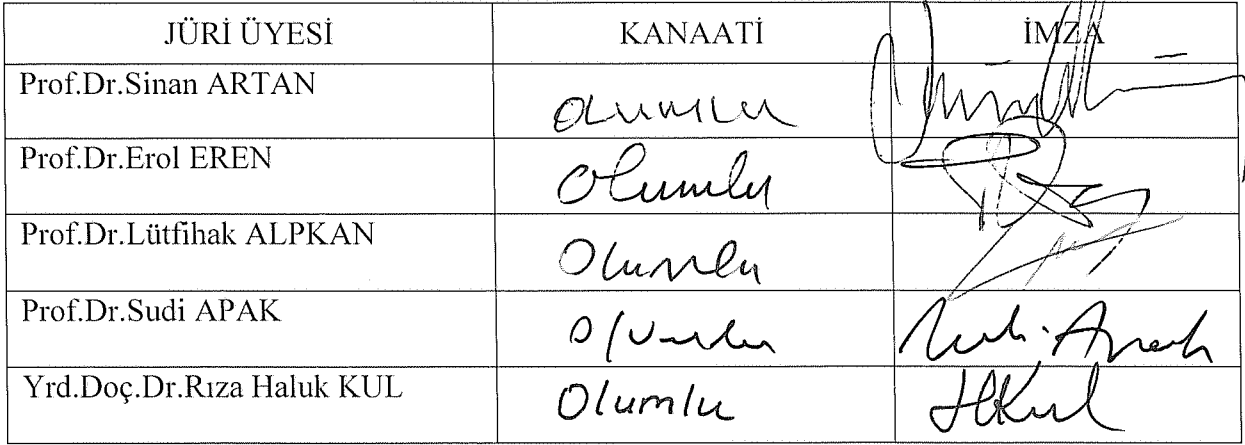 JÜRİ ÜYESİ KANAATİ İMZA
Prof.Dr.Sinan ARTAN olumlu
Prof.Dr.Erol EREN Olumlu
Prof.Dr.Lütfihak ALPKAN Olumlu
Prof.Dr.Sudi APAK Olumlu
Yrd.Doç.Dr.Rıza Haluk KUL Olumlu HKul